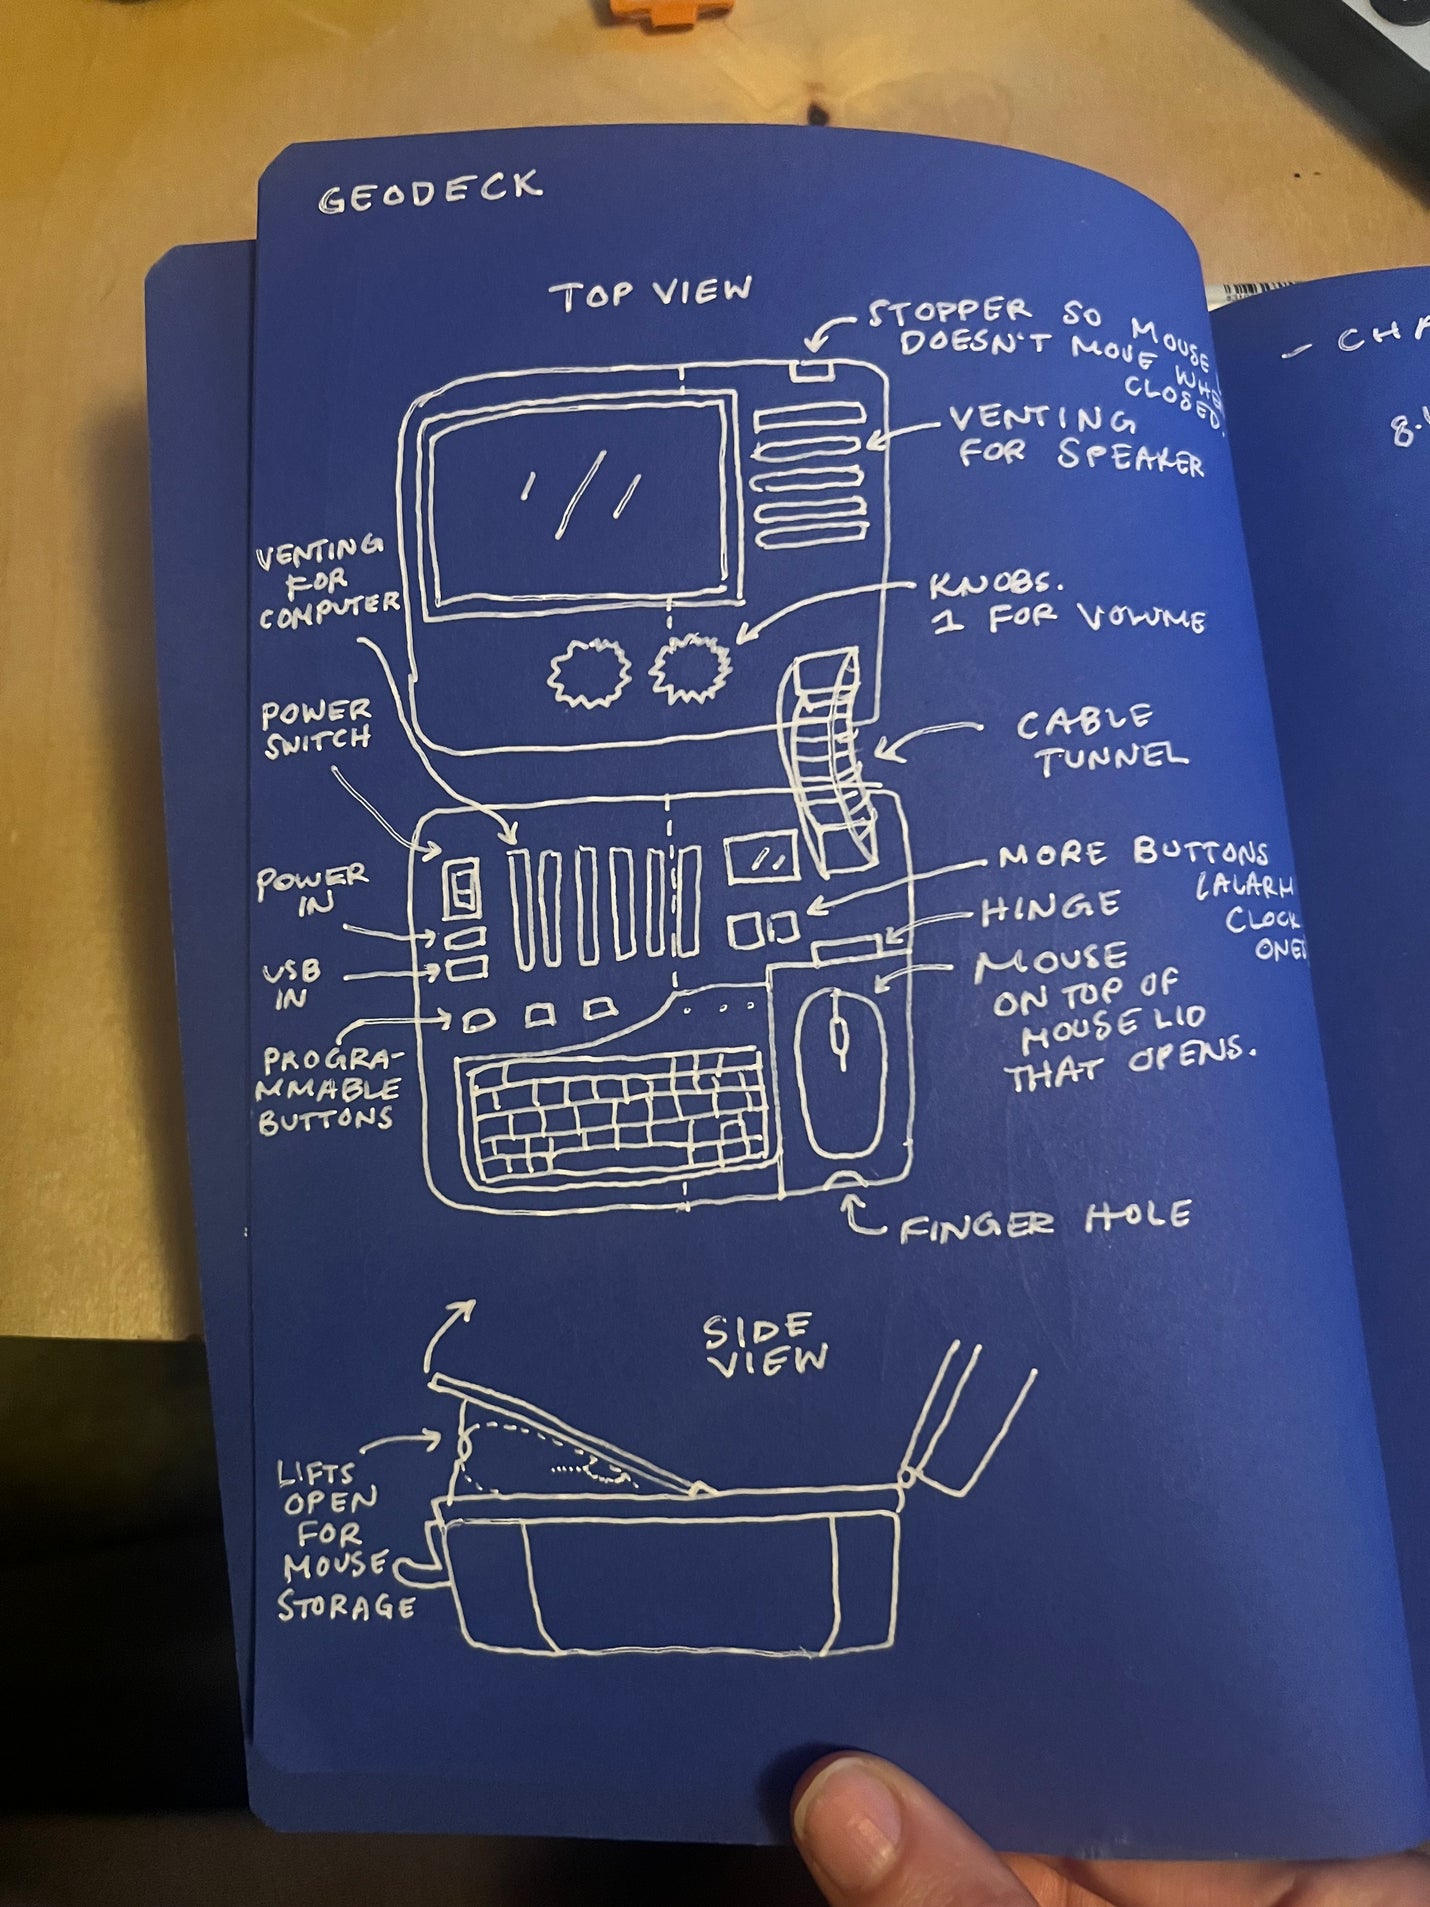 GEODECK
TOP VIEW
STOPPER SO MOUSE
DOESN'T MOVE WHEN
CLOSED.
VENTING
FOR SPEAKER
VENTING
FOR
COMPUTER
KNOBS.
1 FOR VOLUME
POWER
SWITCH
CABLE
TUNNEL
POWER
IN
MORE BUTTONS
(ALARM
CLOCK
HINGE
USB
IN
MOUSE
ON TOP OF
MOUSE LID
THAT OPENS.
PROGRA-
MMABLE
BUTTONS
FINGER HOLE
SIDE
VIEW
LIFTS
OPEN
FOR
MOUSE
STORAGE